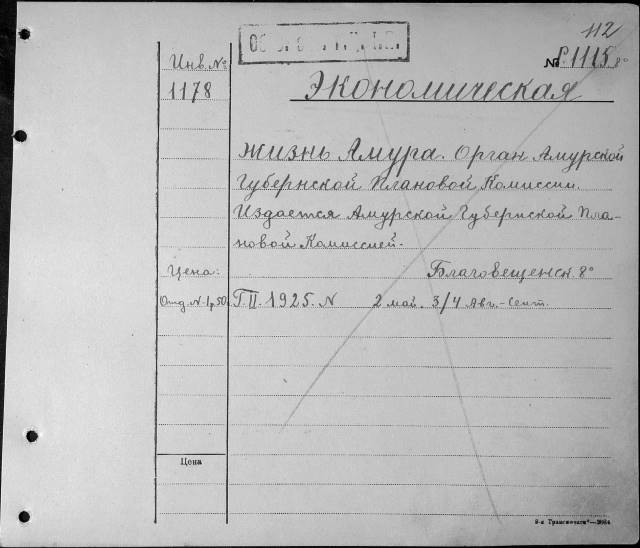 112
№ 8°
Инв. №
1178
Экономическая
жизнь Амура. Орган Амурской
Губернской Плановой Комиссии.
Издается Амурской Губернской Пла-
новой Комиссией.
Цена:
Благовещенск 8°
Отд. N. 1р. 50.
Г. II. 1925. N 2 май. 3/4 Авг.-Сент.
Цена